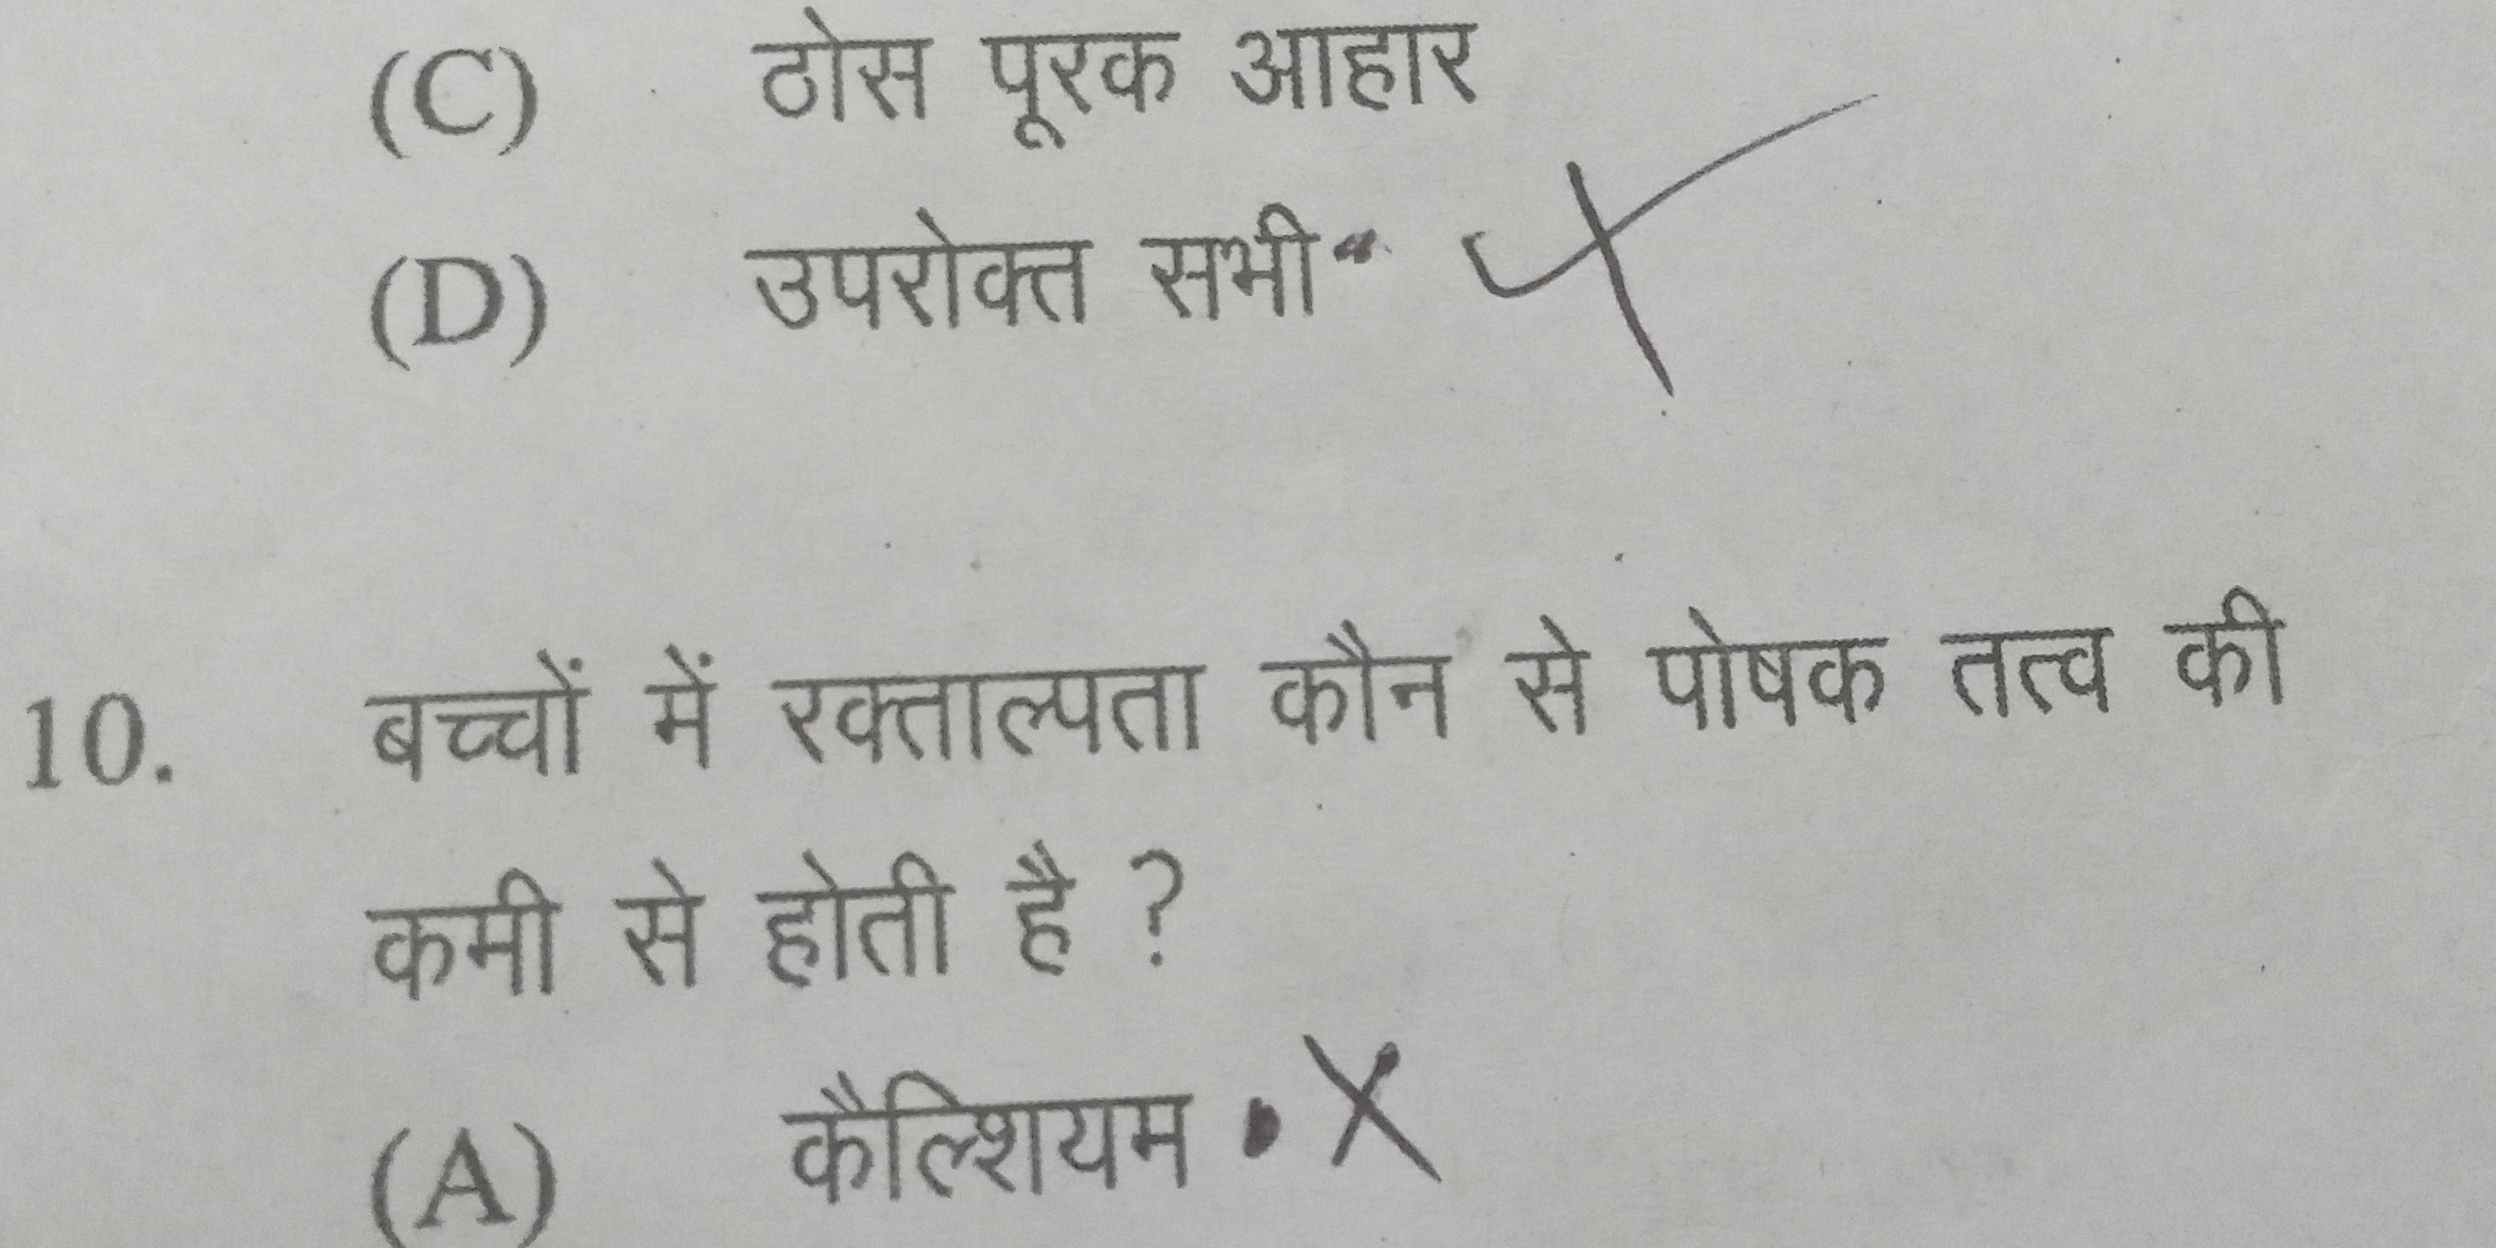 (C) ठोस पूरक आहार
(D) उपरोक्त सभी
10. बच्चों में रक्ताल्पता कौन से पोषक तत्व की
कमी से होती है ?
(A) कैल्शियम